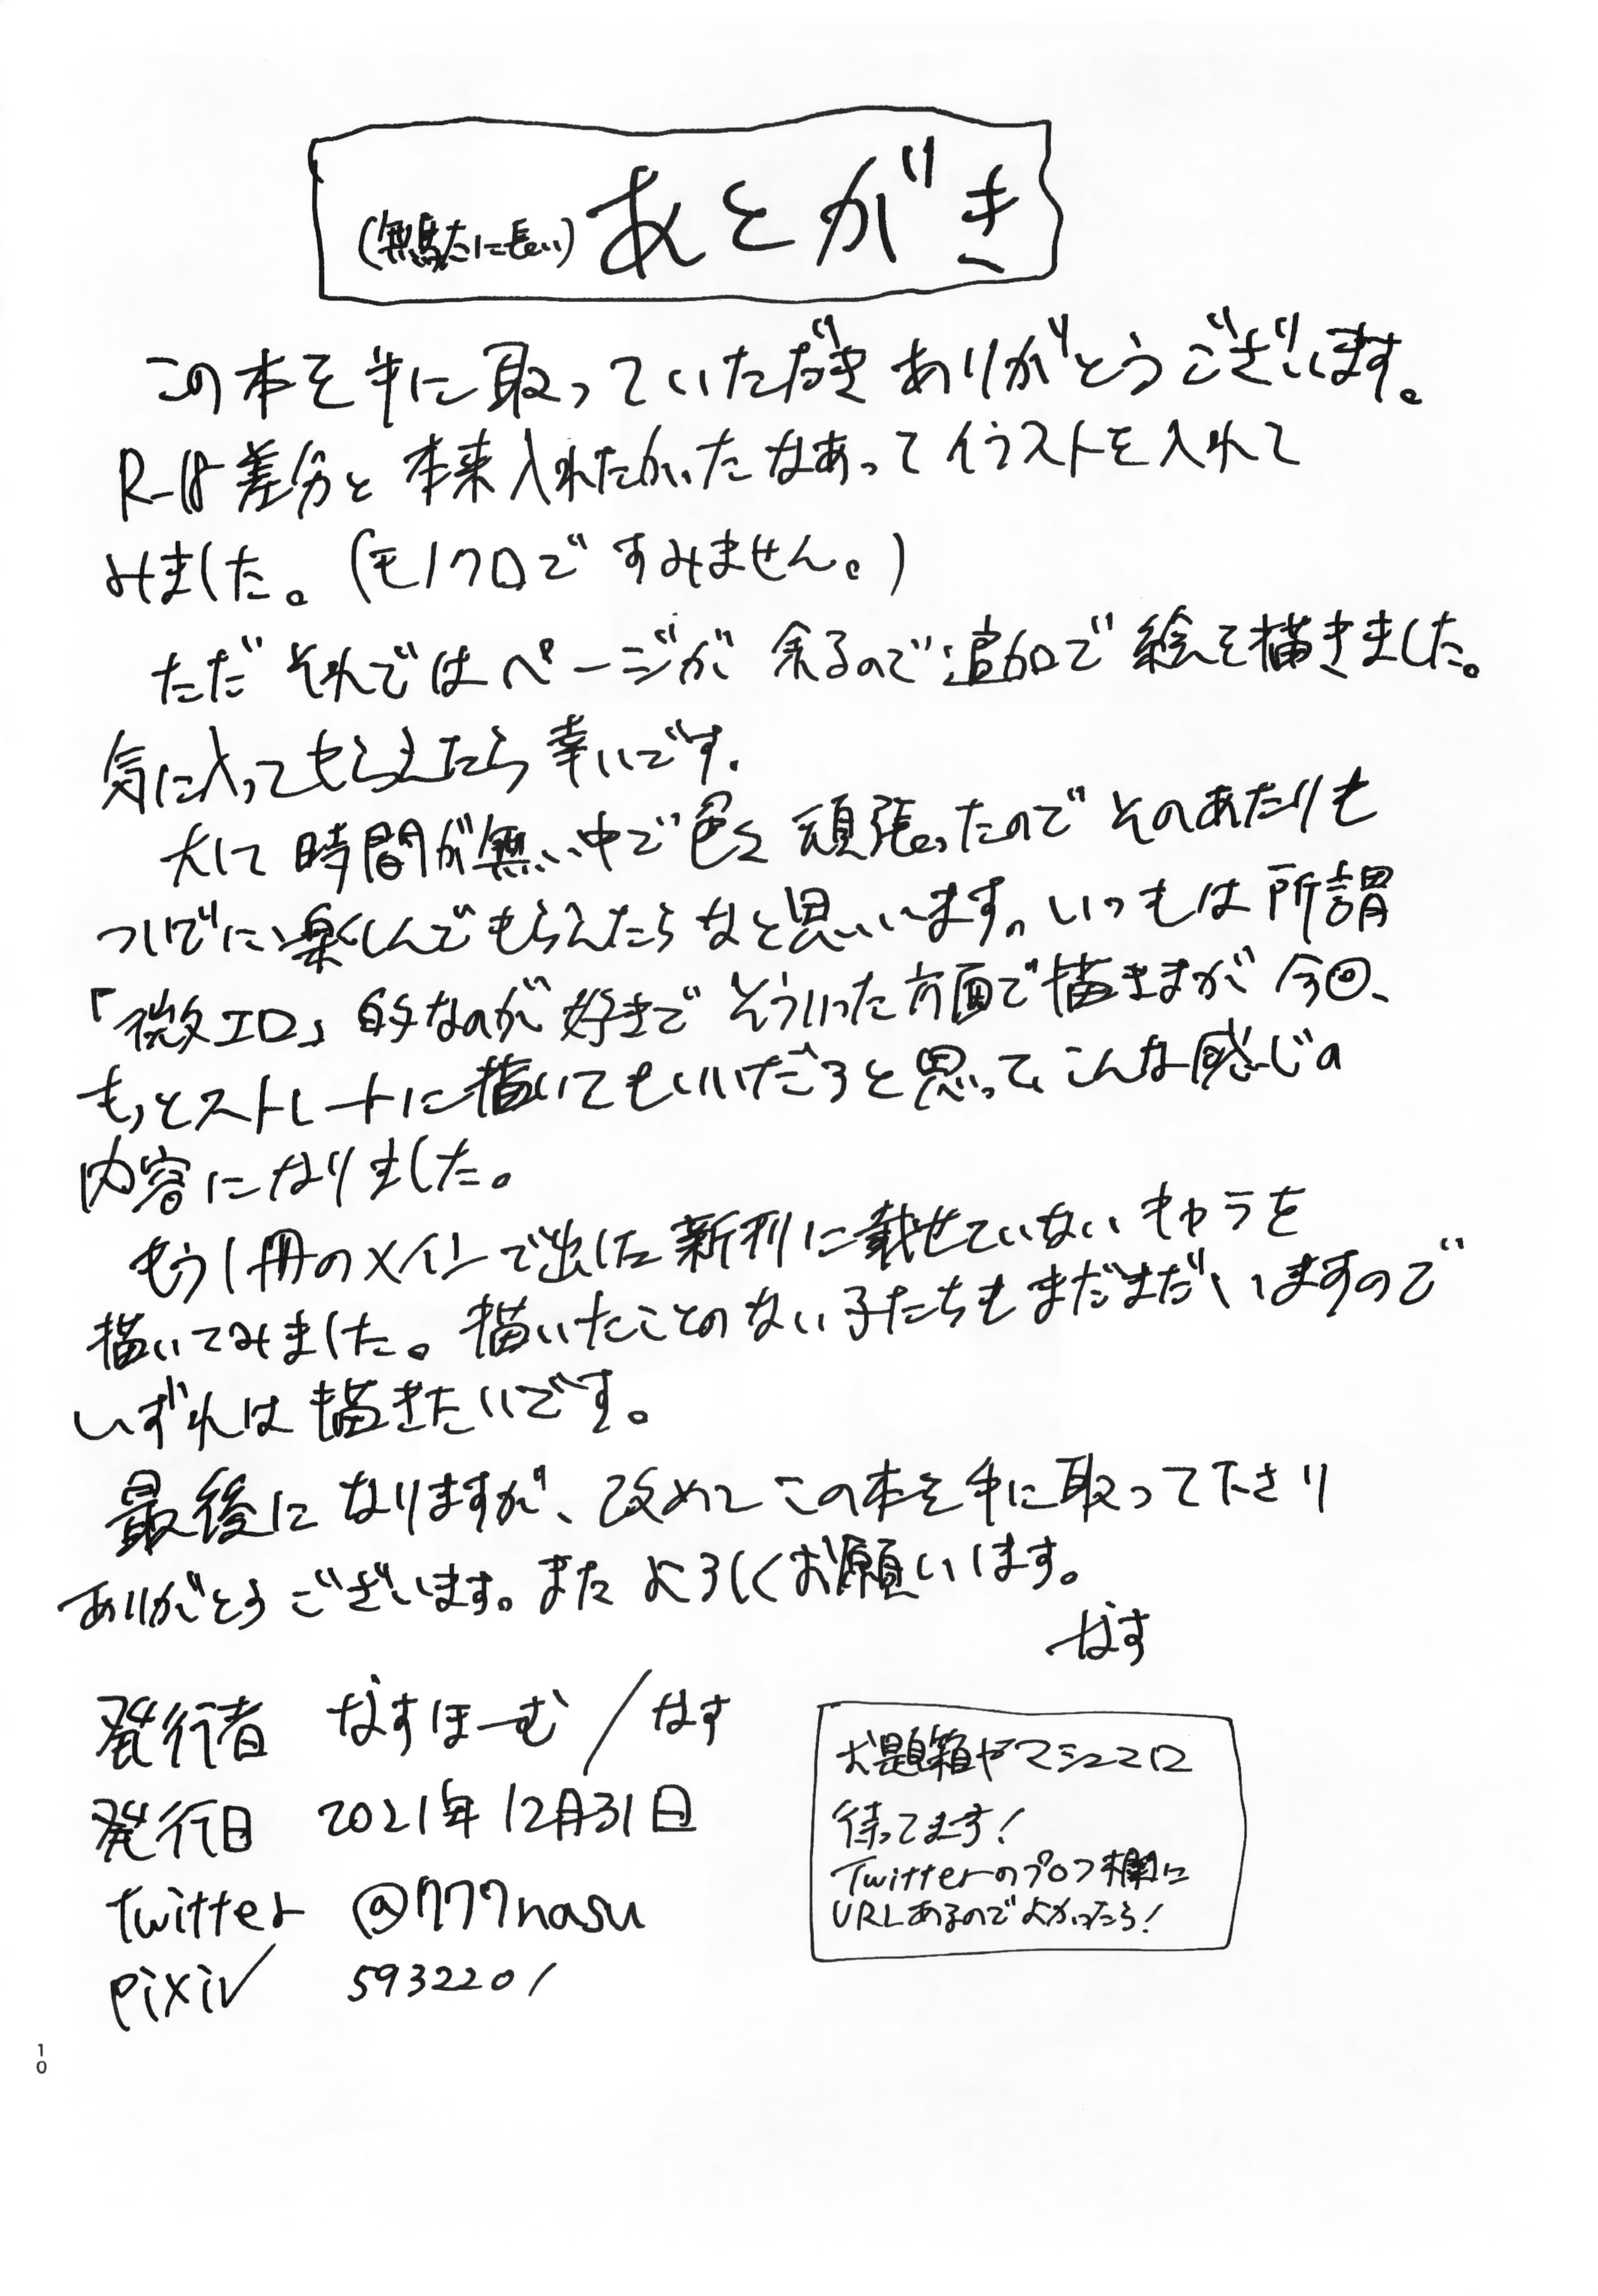 (無駄に長い) あとがき
この本を手に取っていただき ありがとうございます。
R-18差分と 本来入れたかったなあってイラストを入れて
みました。(モノクロですみません。)
ただ それではページが 余るので追加で 絵を描きました。
気に入ってもらえたら 幸いです.
大して 時間が無い中で色々 頑張ったので そのあたりも
ついでに楽しんでもらえたらなと思います。いつもは 所謂
「微エロ」的なのが 好きで そういった方面で描きまが 今回、
もっとストレートに描いてもいいだろと思って、こんな感じの
内容になりました。
もう1冊のメインで出した新刊に載せていない キャラを
描いてみました。描いたことのない子たちもまだまだいますので
いずれは 描きたいです。
最後に なりますが、改めて この本を手に取って下さり
ありがとうございます。また よろしくお願いします。
なす
発行者 なすほーむ/なす
発行日 2021年12月31日
twitter @777nasu
pixiv 5932201
お題箱やマシュマロ
待ってます!
Twitterのプロフ欄に
URLあるのでよかったら!
10